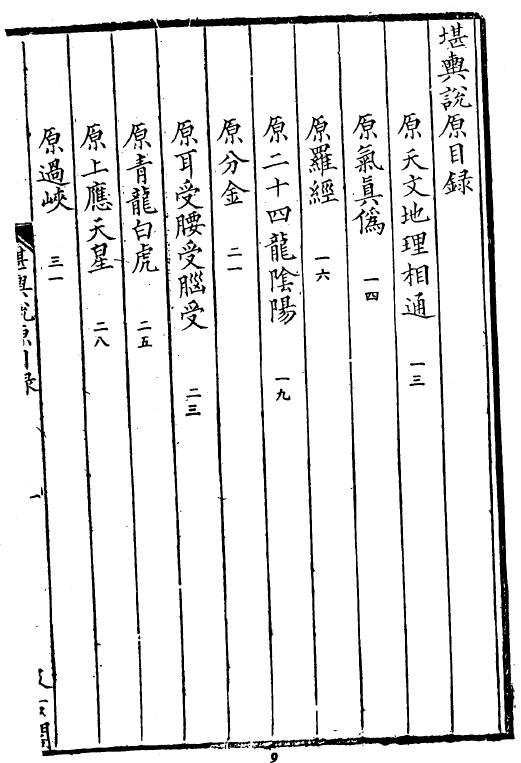 堪輿說原目錄
原天文地理相通 一三
原氣真僞 一四
原羅經 一六
原二十四龍陰陽 一九
原分金 二一
原耳受腰受腦受 二三
原青龍白虎 二五
原上應天星 二八
原過峽 三一
堪輿說原目錄
9